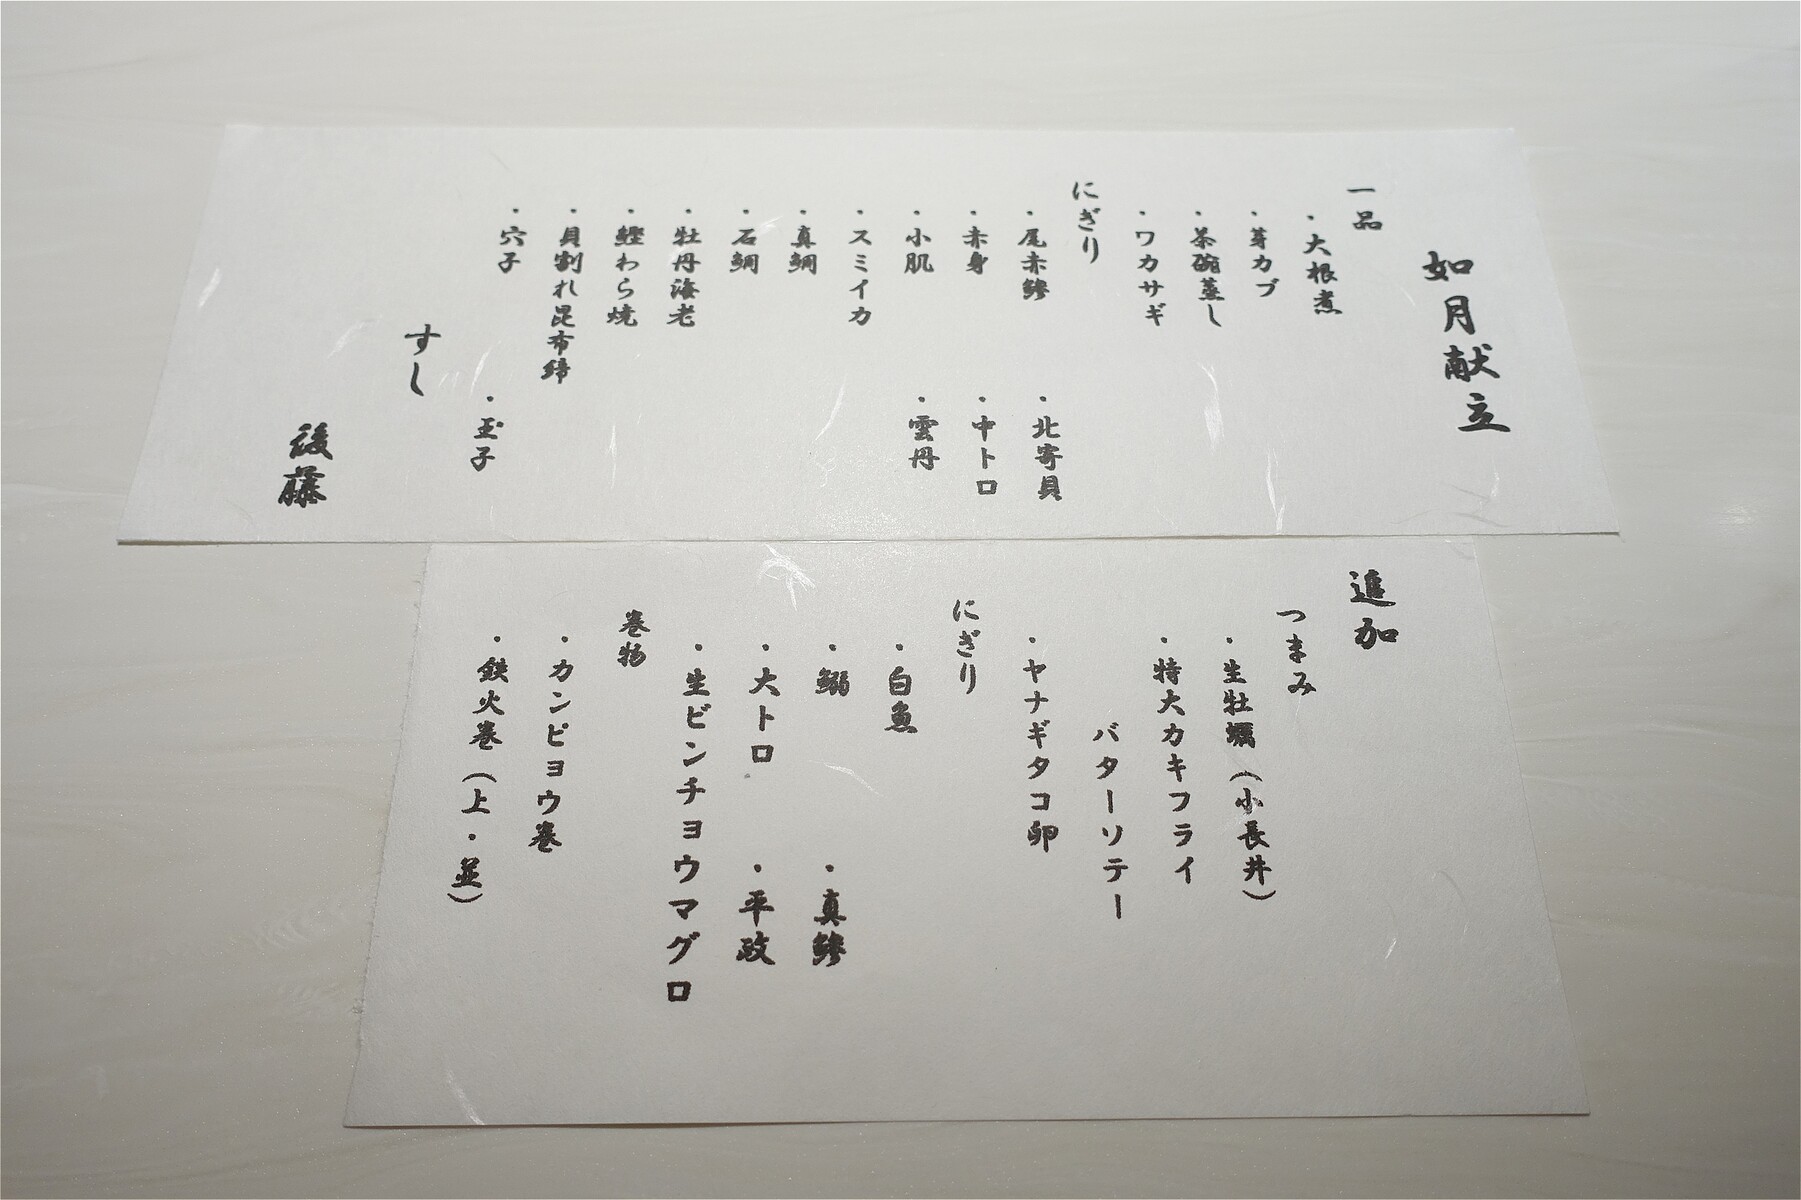 如月献立
一品
・大根煮
・芽カブ
・茶碗蒸し
・ワカサギ
にぎり
・尾赤鯵
・北寄貝
・赤身
・中トロ
・小肌
・雲丹
・スミイカ
・真鯛
・石鯛
・牡丹海老
・鰹わら焼
・貝割れ昆布締
・穴子
・玉子
すし
後藤
追加
つまみ
・生牡蠣(小長井)
・特大カキフライ
バターソテー
・ヤナギタコ卵
にぎり
・白魚
・鰯
・真鯵
・大トロ
・平政
・生ビンチョウマグロ
巻物
・カンピョウ巻
・鉄火巻(上・並)